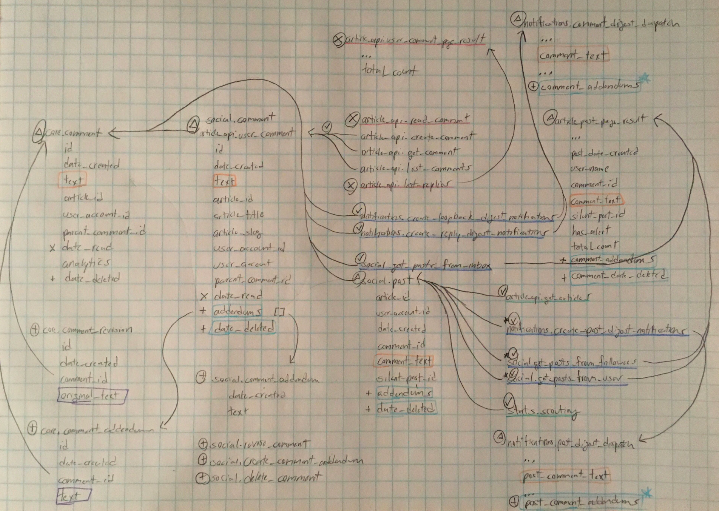 core.comment
id
date_created
text
article_id
user_account_id
parent_comment_id
x date_read
analytics
+ date_deleted
+ core.comment_revision
id
date_created
comment_id
original_text
+ core.comment_addendum
id
date_created
comment_id
text
social.comment
article_api.user_comment
id
date_created
text
article_id
article_title
article_slug
user_account_id
user_account
parent_comment_id
x date_read
+ addendums []
+ date_deleted
social.comment_addendum
date_created
text
+ social.revise_comment
+ social.create_comment_addendum
+ social.delete_comment
x article_api.user_comment_page_result
...
total count
x article_api.read_comment
article_api.create_comment
article_api.get_comment
article_api.list_comments
x article_api.list_replies
notifications.create_loopback_digest_notifications
notifications.create_reply_digest_notifications
social.get_posts_from_inbox
social.post
article_id
user_account_id
date_created
comment_id
comment_text
silent_post_id
+ addendums
+ date_deleted
notifications.comment_digest_dispatch
...
comment_text
...
+ comment_addendums *
article_post_page_result
...
post_date_created
user_name
comment_id
comment_text
silent_post_id
has_alert
total count
+ comment_addendums
+ comment_date_deleted
article_api.get_articles
notifications.create_post_digest_notifications
social.get_posts_from_followees
social.get_posts_from_user
stats.scouting
notifications.post_digest_dispatch
...
post_comment_text
...
+ post_comment_addendums *